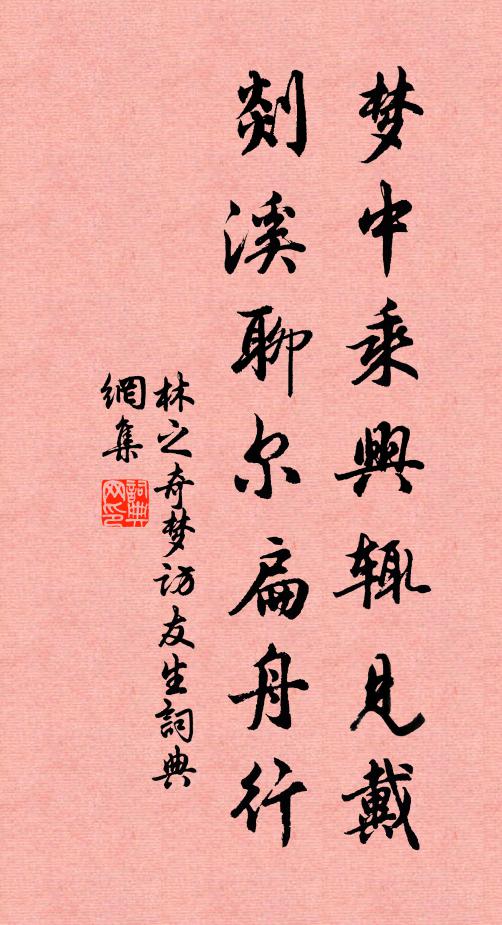 梦中乘興辄見戴
剡溪聊尔扁舟行
林之奇梦访友生詞典
網集
詞典网印